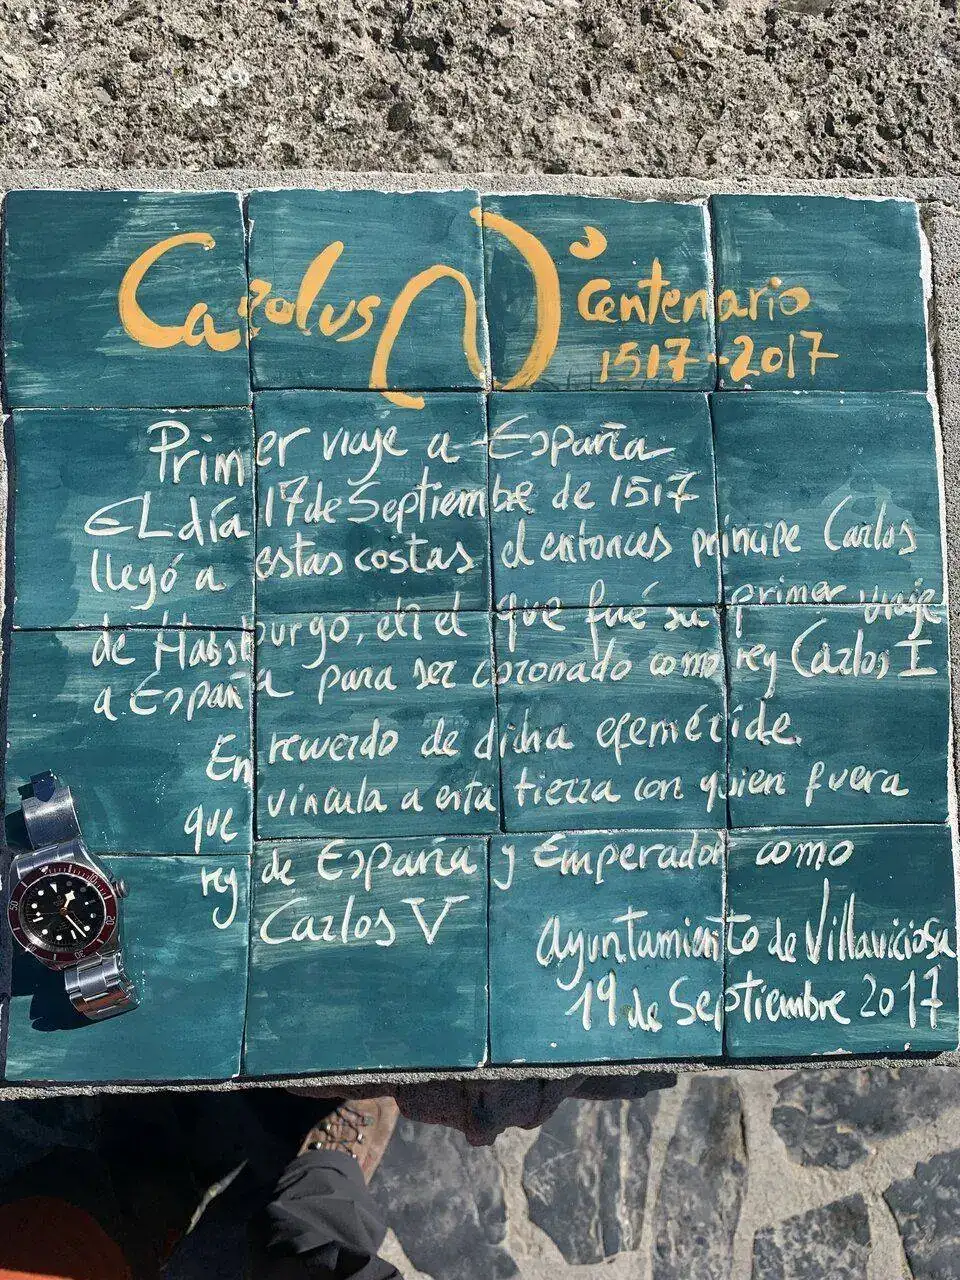 Carolus
Vº Centenario
1517-2017
Primer viaje a España
EL día 17 de Septiembre de 1517
llegó a estas costas el entonces príncipe Carlos
de Habsburgo, en el que fué su primer viaje
a España para ser coronado como rey Carlos I
En recuerdo de dicha efeméride.
que vincula a esta tierra con quien fuera
rey de España y Emperador como
Carlos V
Ayuntamiento de Villaviciosa
19 de Septiembre 2017